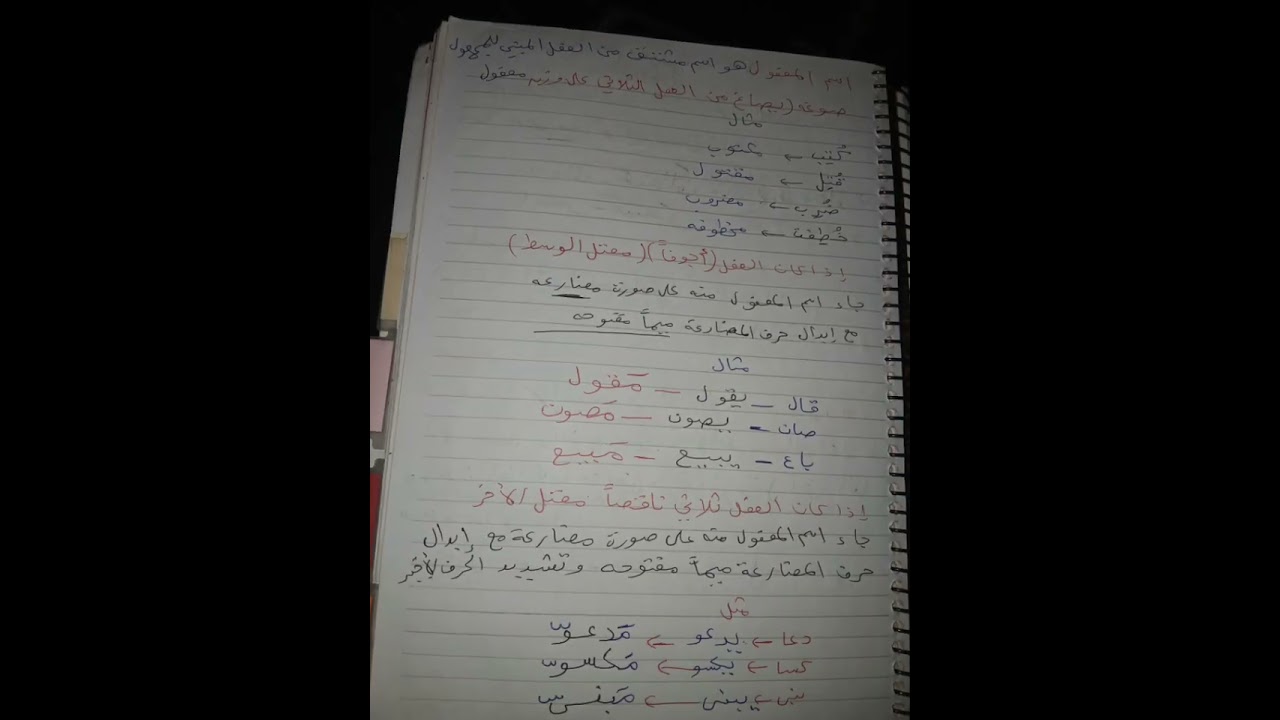 اسم المفعول هو اسم مشتق من الفعل المبني للمجهول
صوغه (يصاغ من الفعل الثلاثي على وزن مفعول
مثال
كُتِب ← مكتوب
قُتِل ← مقتول
ضُرِب ← مضروب
خُطِفت ← مخطوفه
إذا كان الفعل (أجوفاً) (معتل الوسط)
جاء اسم المفعول منه على صورة مضارعه
مع إبدال حرف المضارعة ميماً مفتوحه
مثال
قال – يقول – مَقول
صان – يصون – مَصون
باع – يبيع – مَبيع
إذا كان الفعل ثلاثي ناقصاً معتل الأخر
جاء اسم المفعول منه على صورة مضارعة مع إبدال
حرف المضارعة ميماً مفتوحه وتشديد الحرف الأخر
مثل
دعا ← يدعو ← مَدعوّ
كسا ← يكسو ← مَكسوّ
بنى ← يبنى ← مَبنىّ